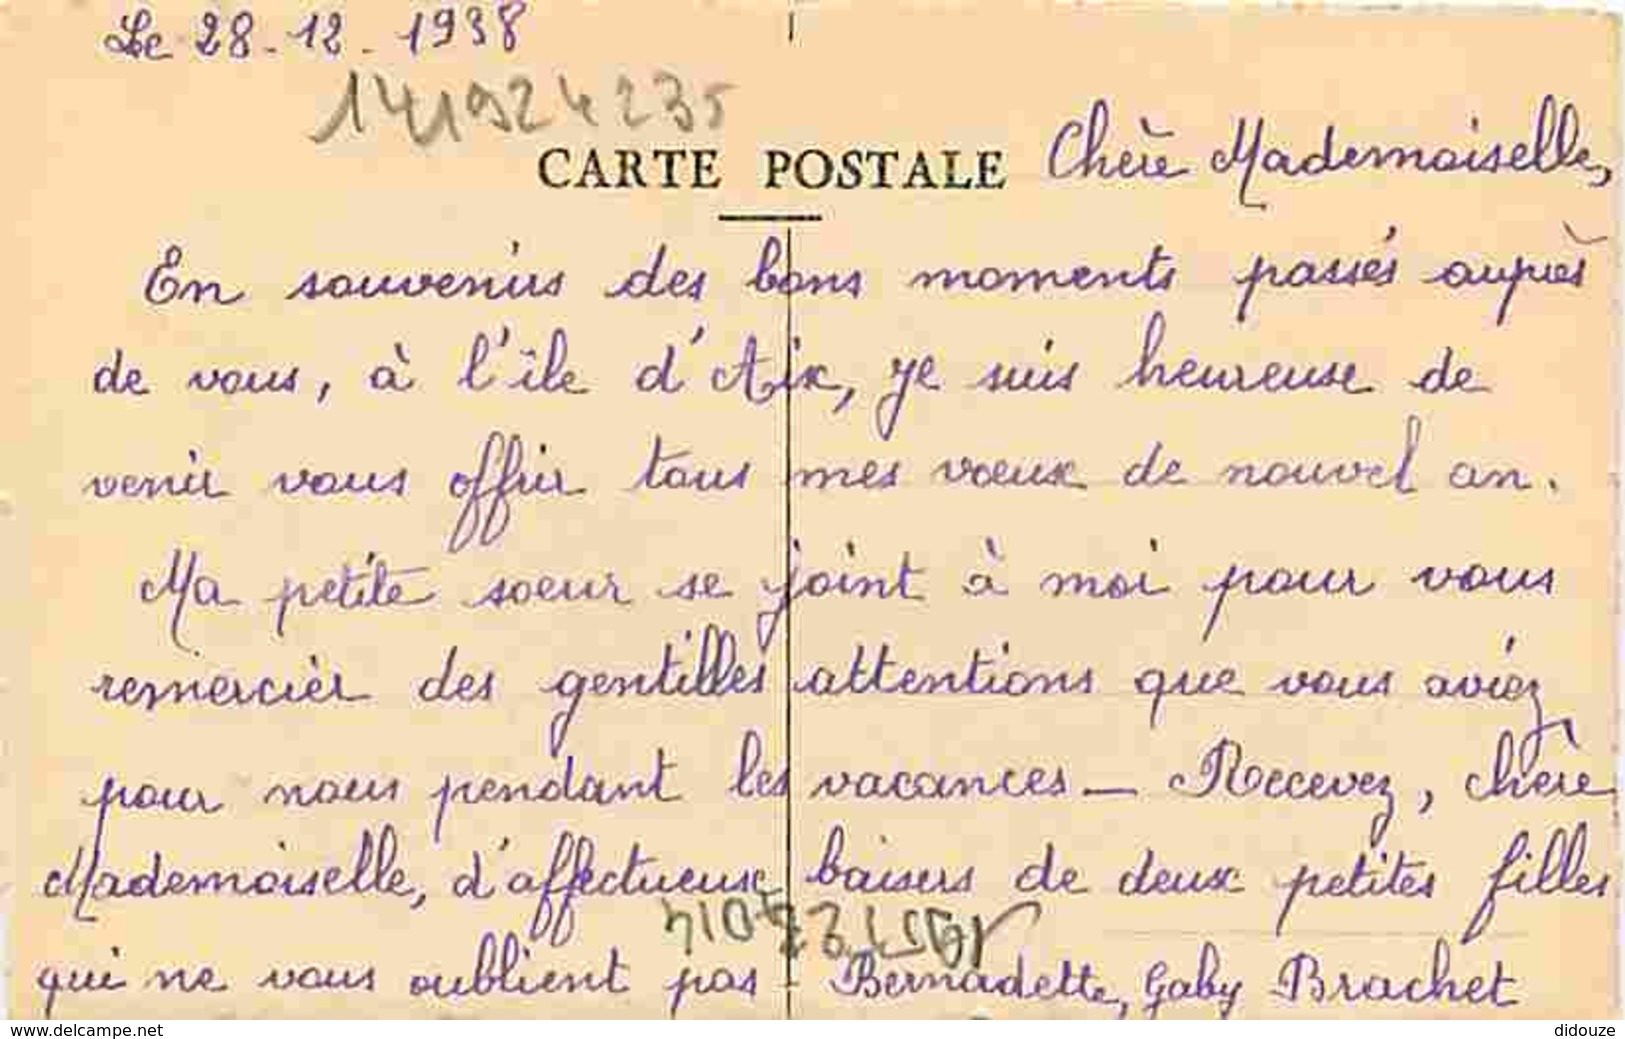 Le 28-12-1938
141924235
CARTE POSTALE
Chère Mademoiselle,
En souvenirs des bons moments passés auprès
de vous, à l'île d'Aix, je suis heureuse de
venir vous offrir tous mes vœux de nouvel an.
Ma petite soeur se joint à moi pour vous
remercier des gentilles attentions que vous aviez
pour nous pendant les vacances - Recevez, chère
Mademoiselle, d'affectueux baisers de deux petites filles
qui ne vous oublient pas - Bernadette, Gaby Brachet
www.delcampe.net
didouze